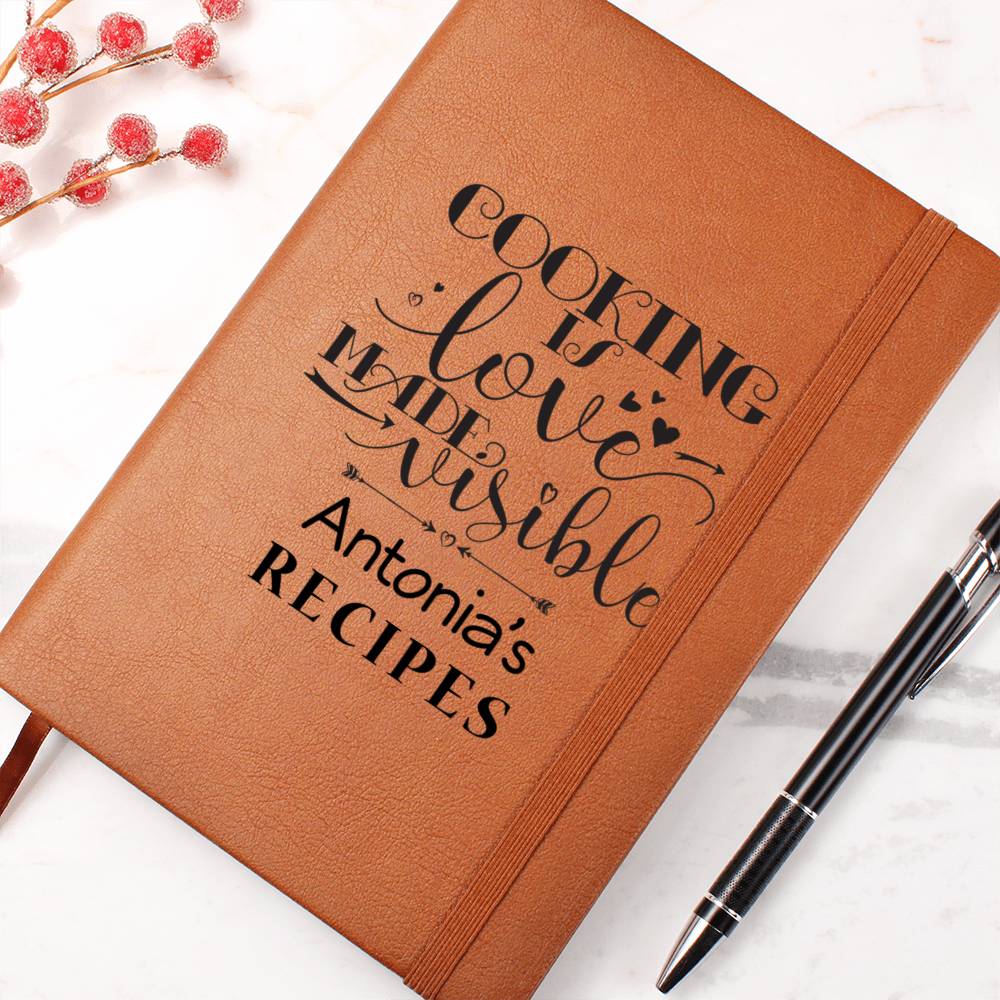 COOKING
IS
love
MADE
visible
Antonia's
RECIPES